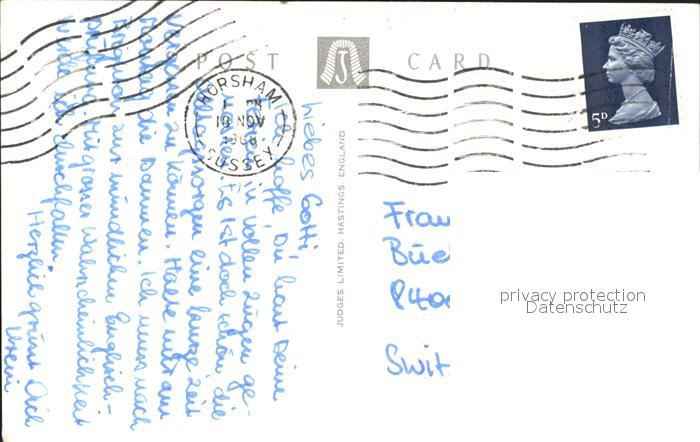 POST CARD
HORSHAM
18 NOV
1968
SUSSEX
5D
JUDGES LIMITED, HASTINGS, ENGLAND
Liebes Gotti,
Ich hoffe, Du hast Deine
in vollen Zügen ge-
Es ist doch schön, die
sorgen eine lange Zeit
zu können. Halte mir am
Montag die Daumen. Ich muss nach
zur mündlichen Englisch-
prüfung. Mit grosser Wahrscheinlichkeit
werde ich durchfallen.
Herzlich grüsst Dich
Vreni
Frau
Büe
840
Swit
privacy protection
Datenschutz